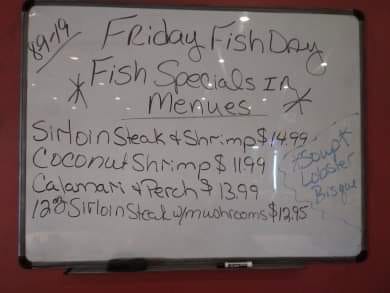 8-9-19
Friday Fish Day
Fish Specials In
Menues
Sirloin Steak & Shrimp $14.99
Coconut Shrimp $11.99
Calamari & Perch $13.99
12oz Sirloin Steak w/mushrooms $12.95
Soup
Lobster
Bisque